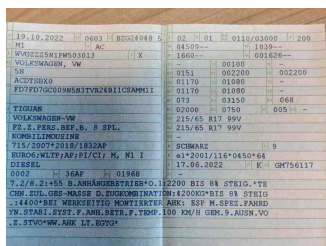 19.10.2022 0603 BZG24048 5 02 01 0110/03000 200
M1 AC 04509-- 1839--
WVGZZZ5N1PW503013 X 1660-- 001626--
VOLKSWAGEN, VW 00100 -
5N 0151 002200 002200
ACDTSBX0 01170 01080 -
FD7FD7GC009N5N3TVR24BI1CSAMM1I 01170 01080 -
- 073 03150 068
TIGUAN 02000 0750 005 -
VOLKSWAGEN-VW 215/65 R17 99V
FZ.Z.PERS.BEF.B. 8 SPL. 215/65 R17 99V
KOMBILIMOUSINE -
715/2007*2018/1832AP SCHWARZ 9
EURO6;WLTP;AP;PI/CI; M, N1 I e1*2001/116*0450*64
DIESEL 17.06.2022 K GM756117
0002 36AP 01968
7.2/8.2:+55 B.ANHÄNGEBETRIEB*O.1:2200 BIS 8% STEIG.*TE
CHN.ZUL.GES-MASSE D.ZUGKOMBINATION:4200KG*BIS 8% STEIG
.:4400*BEI WERKSEITIG MONTIERTER AHK: ESP M.SPEZ.FAHRD
YN.STABI.SYST.F.ANH.BETR.F.TEMP.100 KM/H GEM.9.AUSN.VO
.Z.STVO*WW.AHK LT.EGTG*